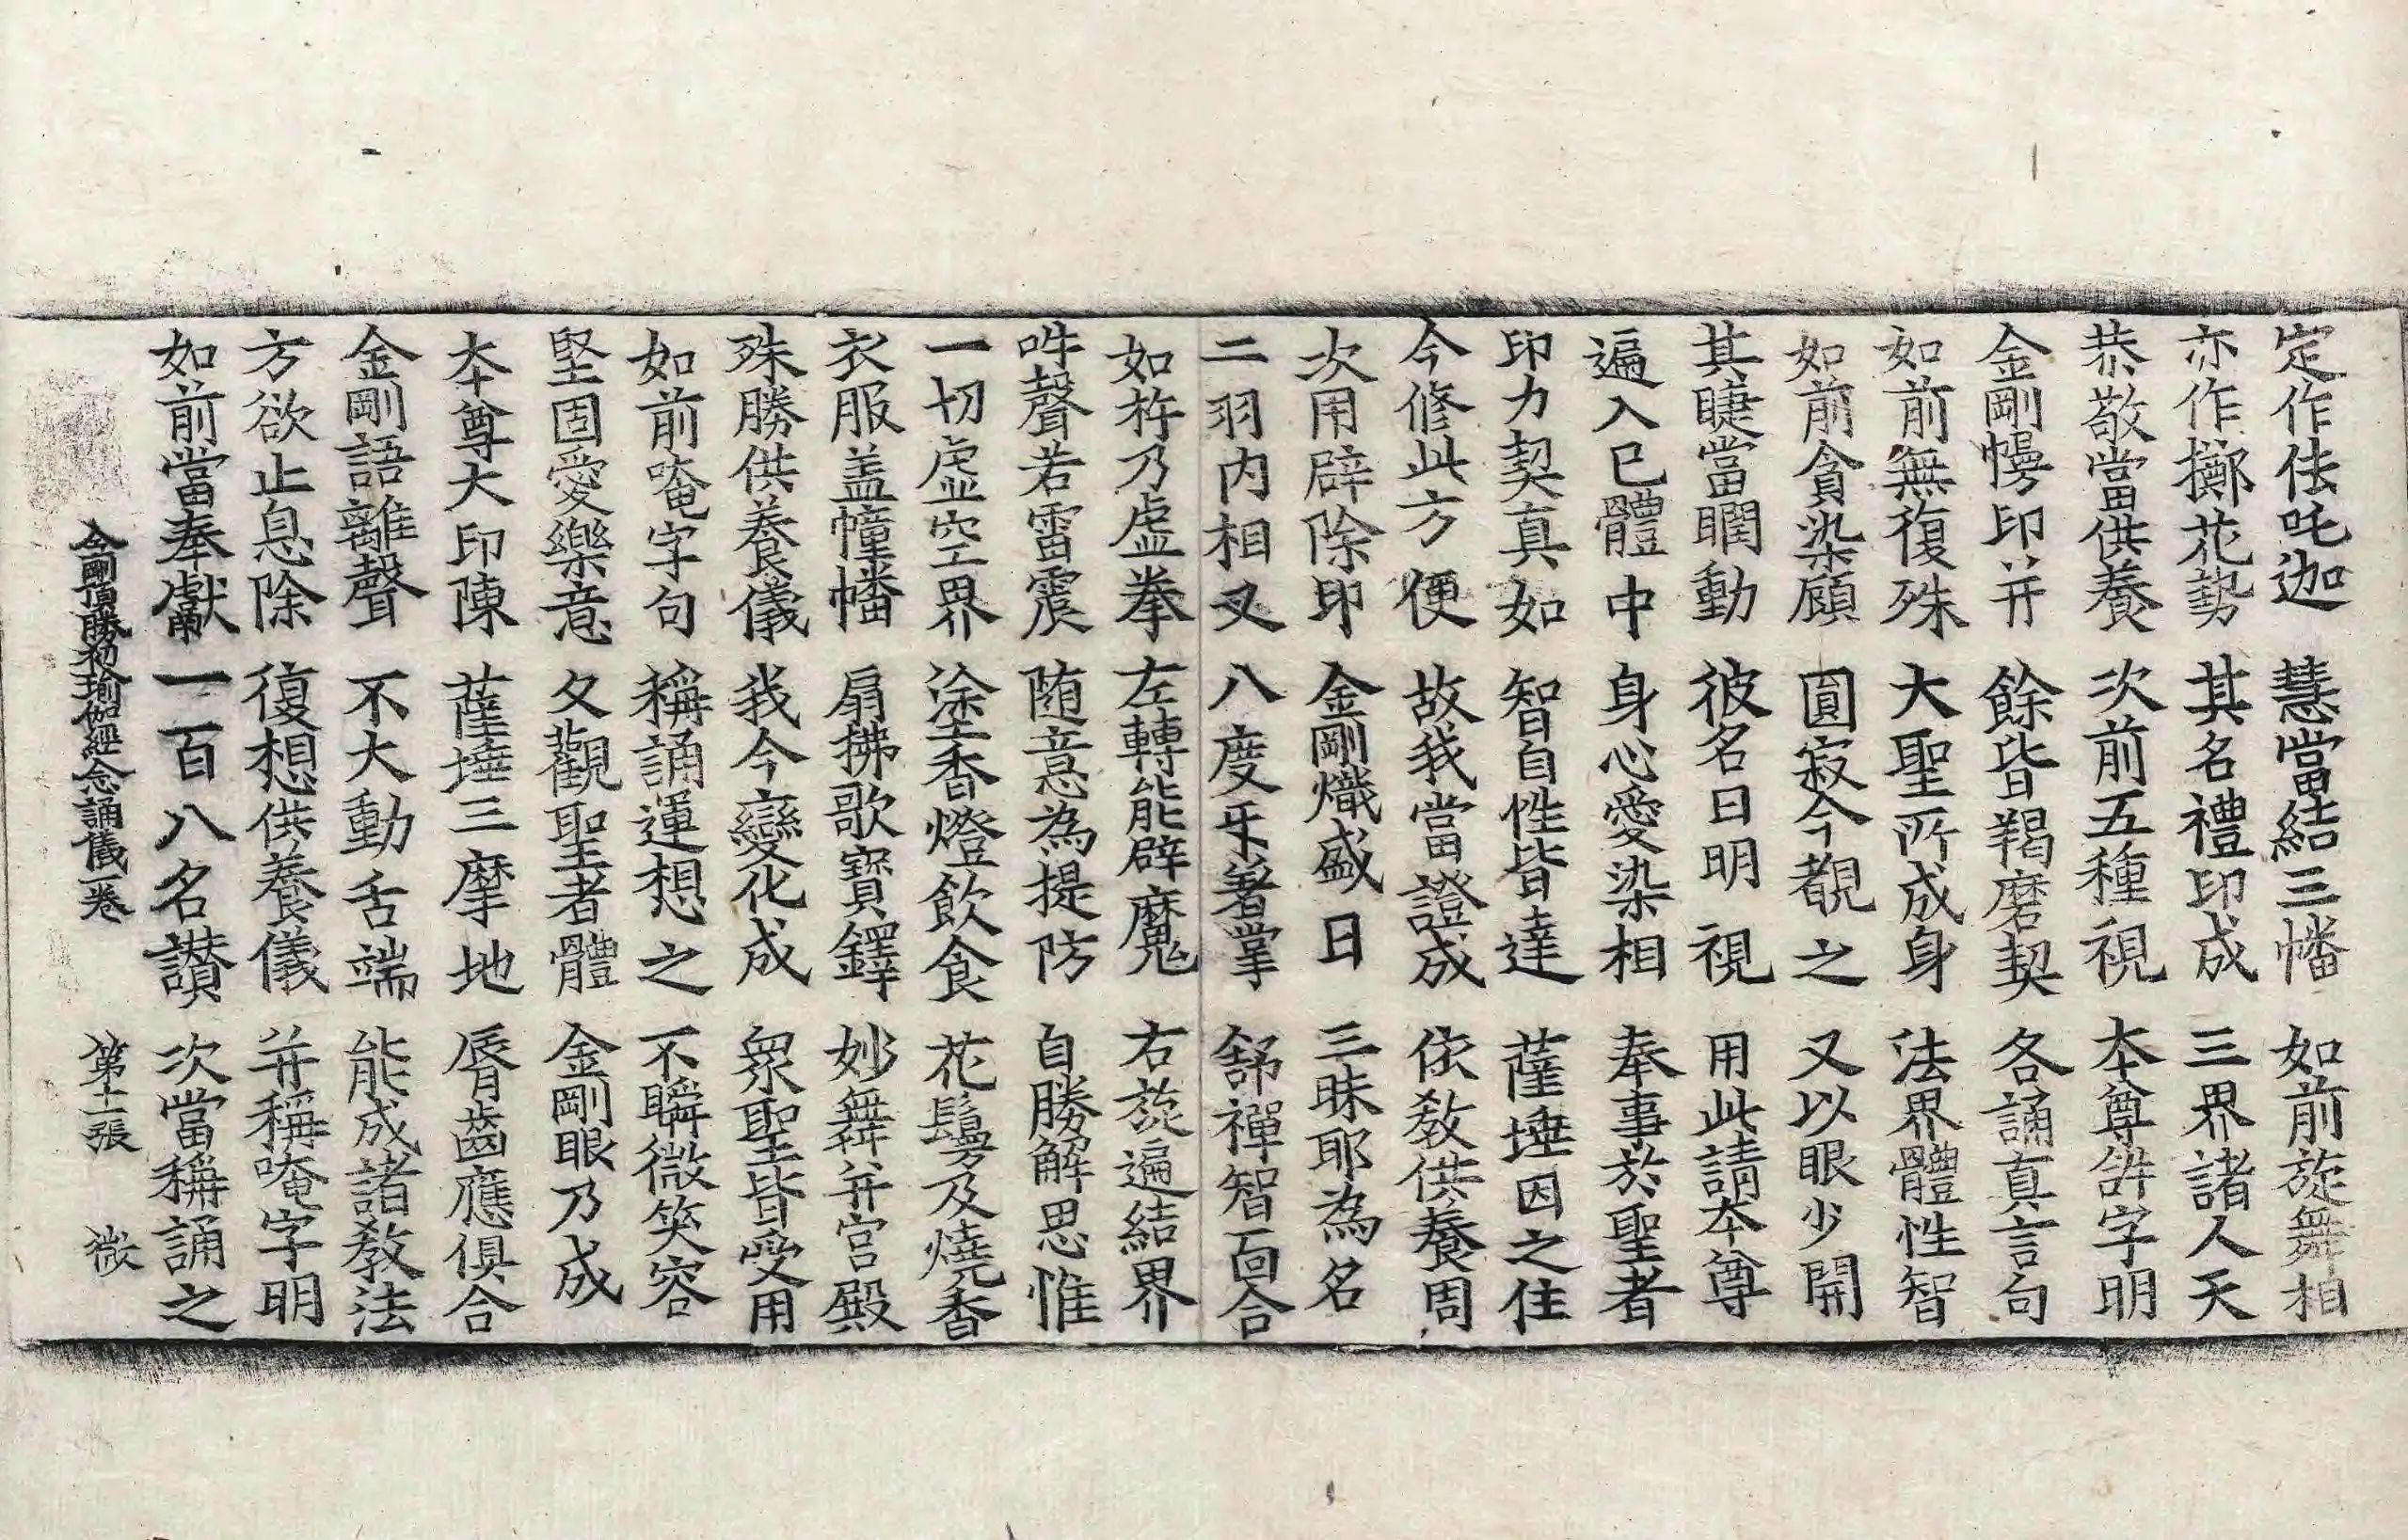 定作佉吒迦　慧當結三幡　如前旋舞相
亦作擲花勢　其名禮印成　三界諸人天
恭敬當供養　次前五種視　夲尊㪽字明
金剛慢印并　餘皆羯磨契　各誦真言句
如前無復殊　大聖所成身　法界體性智
如前貪染顧　圓寂今覩之　又以眼少開
其睫當瞤動　彼名曰明視　用此請夲尊
遍入已體中　身心愛染相　奉事於聖者
印力契真如　智自性皆達　薩埵因之住
今修此方便　故我當證成　依教供養周
次用辟除印　金剛熾盛日　三昧耶為名
二羽内相叉　八度㸦著掌　舒禪智面合
如杵乃虛拳　左轉能辟魔　右旋遍結界
吽聲若雷震　随意為提防　自勝解思惟
一切虛空界　塗香燈飲食　花鬘及燒香
衣服盖幢幡　扇拂歌寶鐸　妙舞并宫殿
殊勝供養儀　我今變化成　衆聖皆受用
如前唵字句　稱誦運想之　不瞬微笑容
堅固愛樂意　夂觀聖者體　金剛眼乃成
夲尊大印陳　薩埵三摩地　脣齒應俱合
金剛語離聲　不大動舌端　能成諸教法
方欲止息除　復想供養儀　并稱唵字明
如前當奉獻　一百八名讃　次當稱誦之
金剛頂勝初瑜伽經念誦儀一卷　第十二張　微